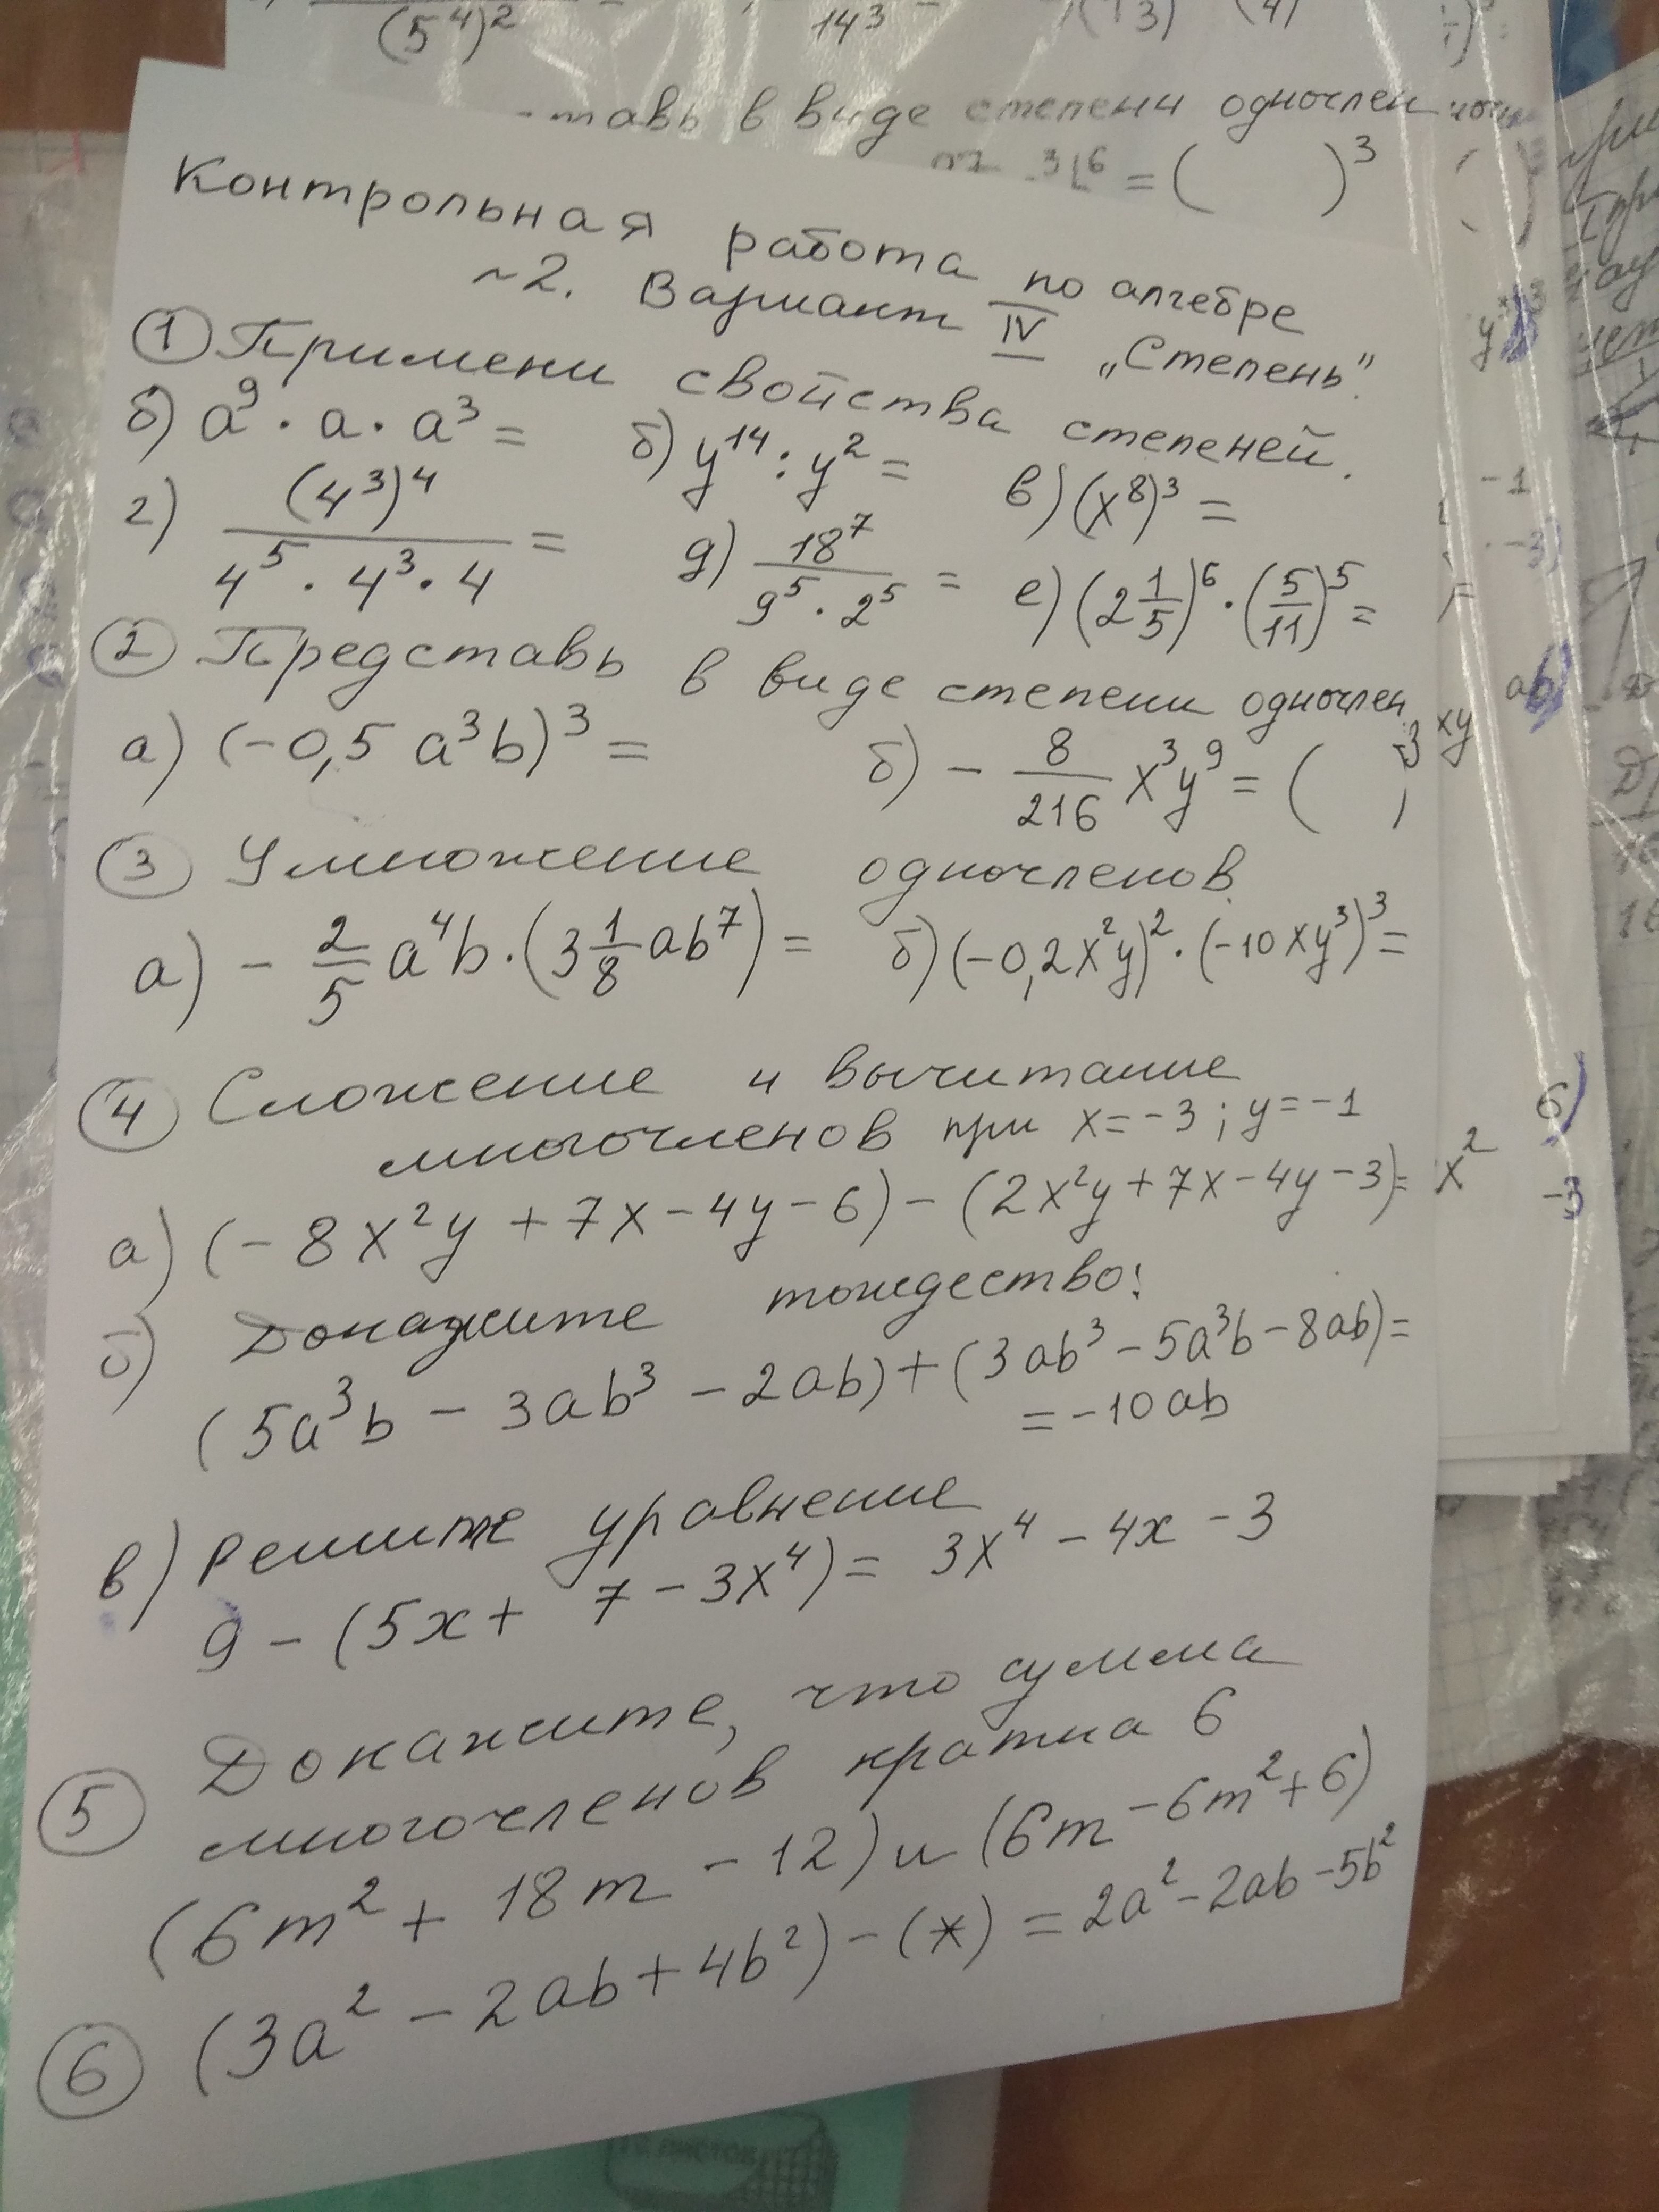 (5⁴)² 14³
в виде степени одночлен
= ( )³
Контрольная работа по алгебре
~2. Вариант IV „Степень“.
① Примени свойства степеней.
б) a⁹ · a · a³ = б) y¹⁴ : y² = в) (x⁸)³ =
г) (4³)⁴ / 4⁵ · 4³ · 4 = д) 18⁷ / 9⁵ · 2⁵ = е) (2 1/5)⁶ · (5/11)⁵ =
② Представь в виде степени одночлен
а) (-0,5 a³b)³ = б) - 8/216 x³y⁹ = ( )³
③ Умножение одночленов
а) - 2/5 a⁴b · (3 1/8 ab⁷) = б) (-0,2x²y)² · (-10xy³)³ =
④ Сложение и вычитание
многочленов при x = -3 ; y = -1
а) (-8x²y + 7x - 4y - 6) - (2x²y + 7x - 4y - 3) =
б) Докажите тождество:
(5a³b - 3ab³ - 2ab) + (3ab³ - 5a³b - 8ab) =
= -10ab
в) Решите уравнение
9 - (5x + 7 - 3x⁴) = 3x⁴ - 4x - 3
⑤ Докажите, что сумма
многочленов кратна 6
(6m² + 18m - 12) и (6m - 6m² + 6)
⑥ (3a² - 2ab + 4b²) - (*) = 2a² - 2ab - 5b²